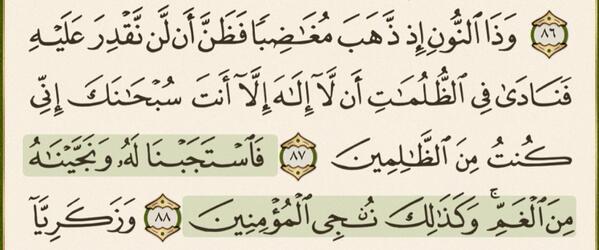 ٨٦ وَذَا ٱلنُّونِ إِذ ذَّهَبَ مُغَـٰضِبٗا فَظَنَّ أَن لَّن نَّقۡدِرَ عَلَيۡهِ
فَنَادَىٰ فِي ٱلظُّلُمَـٰتِ أَن لَّآ إِلَـٰهَ إِلَّآ أَنتَ سُبۡحَـٰنَكَ إِنِّي
كُنتُ مِنَ ٱلظَّـٰلِمِينَ ٨٧ فَٱسۡتَجَبۡنَا لَهُۥ وَنَجَّيۡنَـٰهُ
مِنَ ٱلۡغَمِّۚ وَكَذَٰلِكَ نُـۨجِي ٱلۡمُؤۡمِنِينَ ٨٨ وَزَكَرِيَّآ